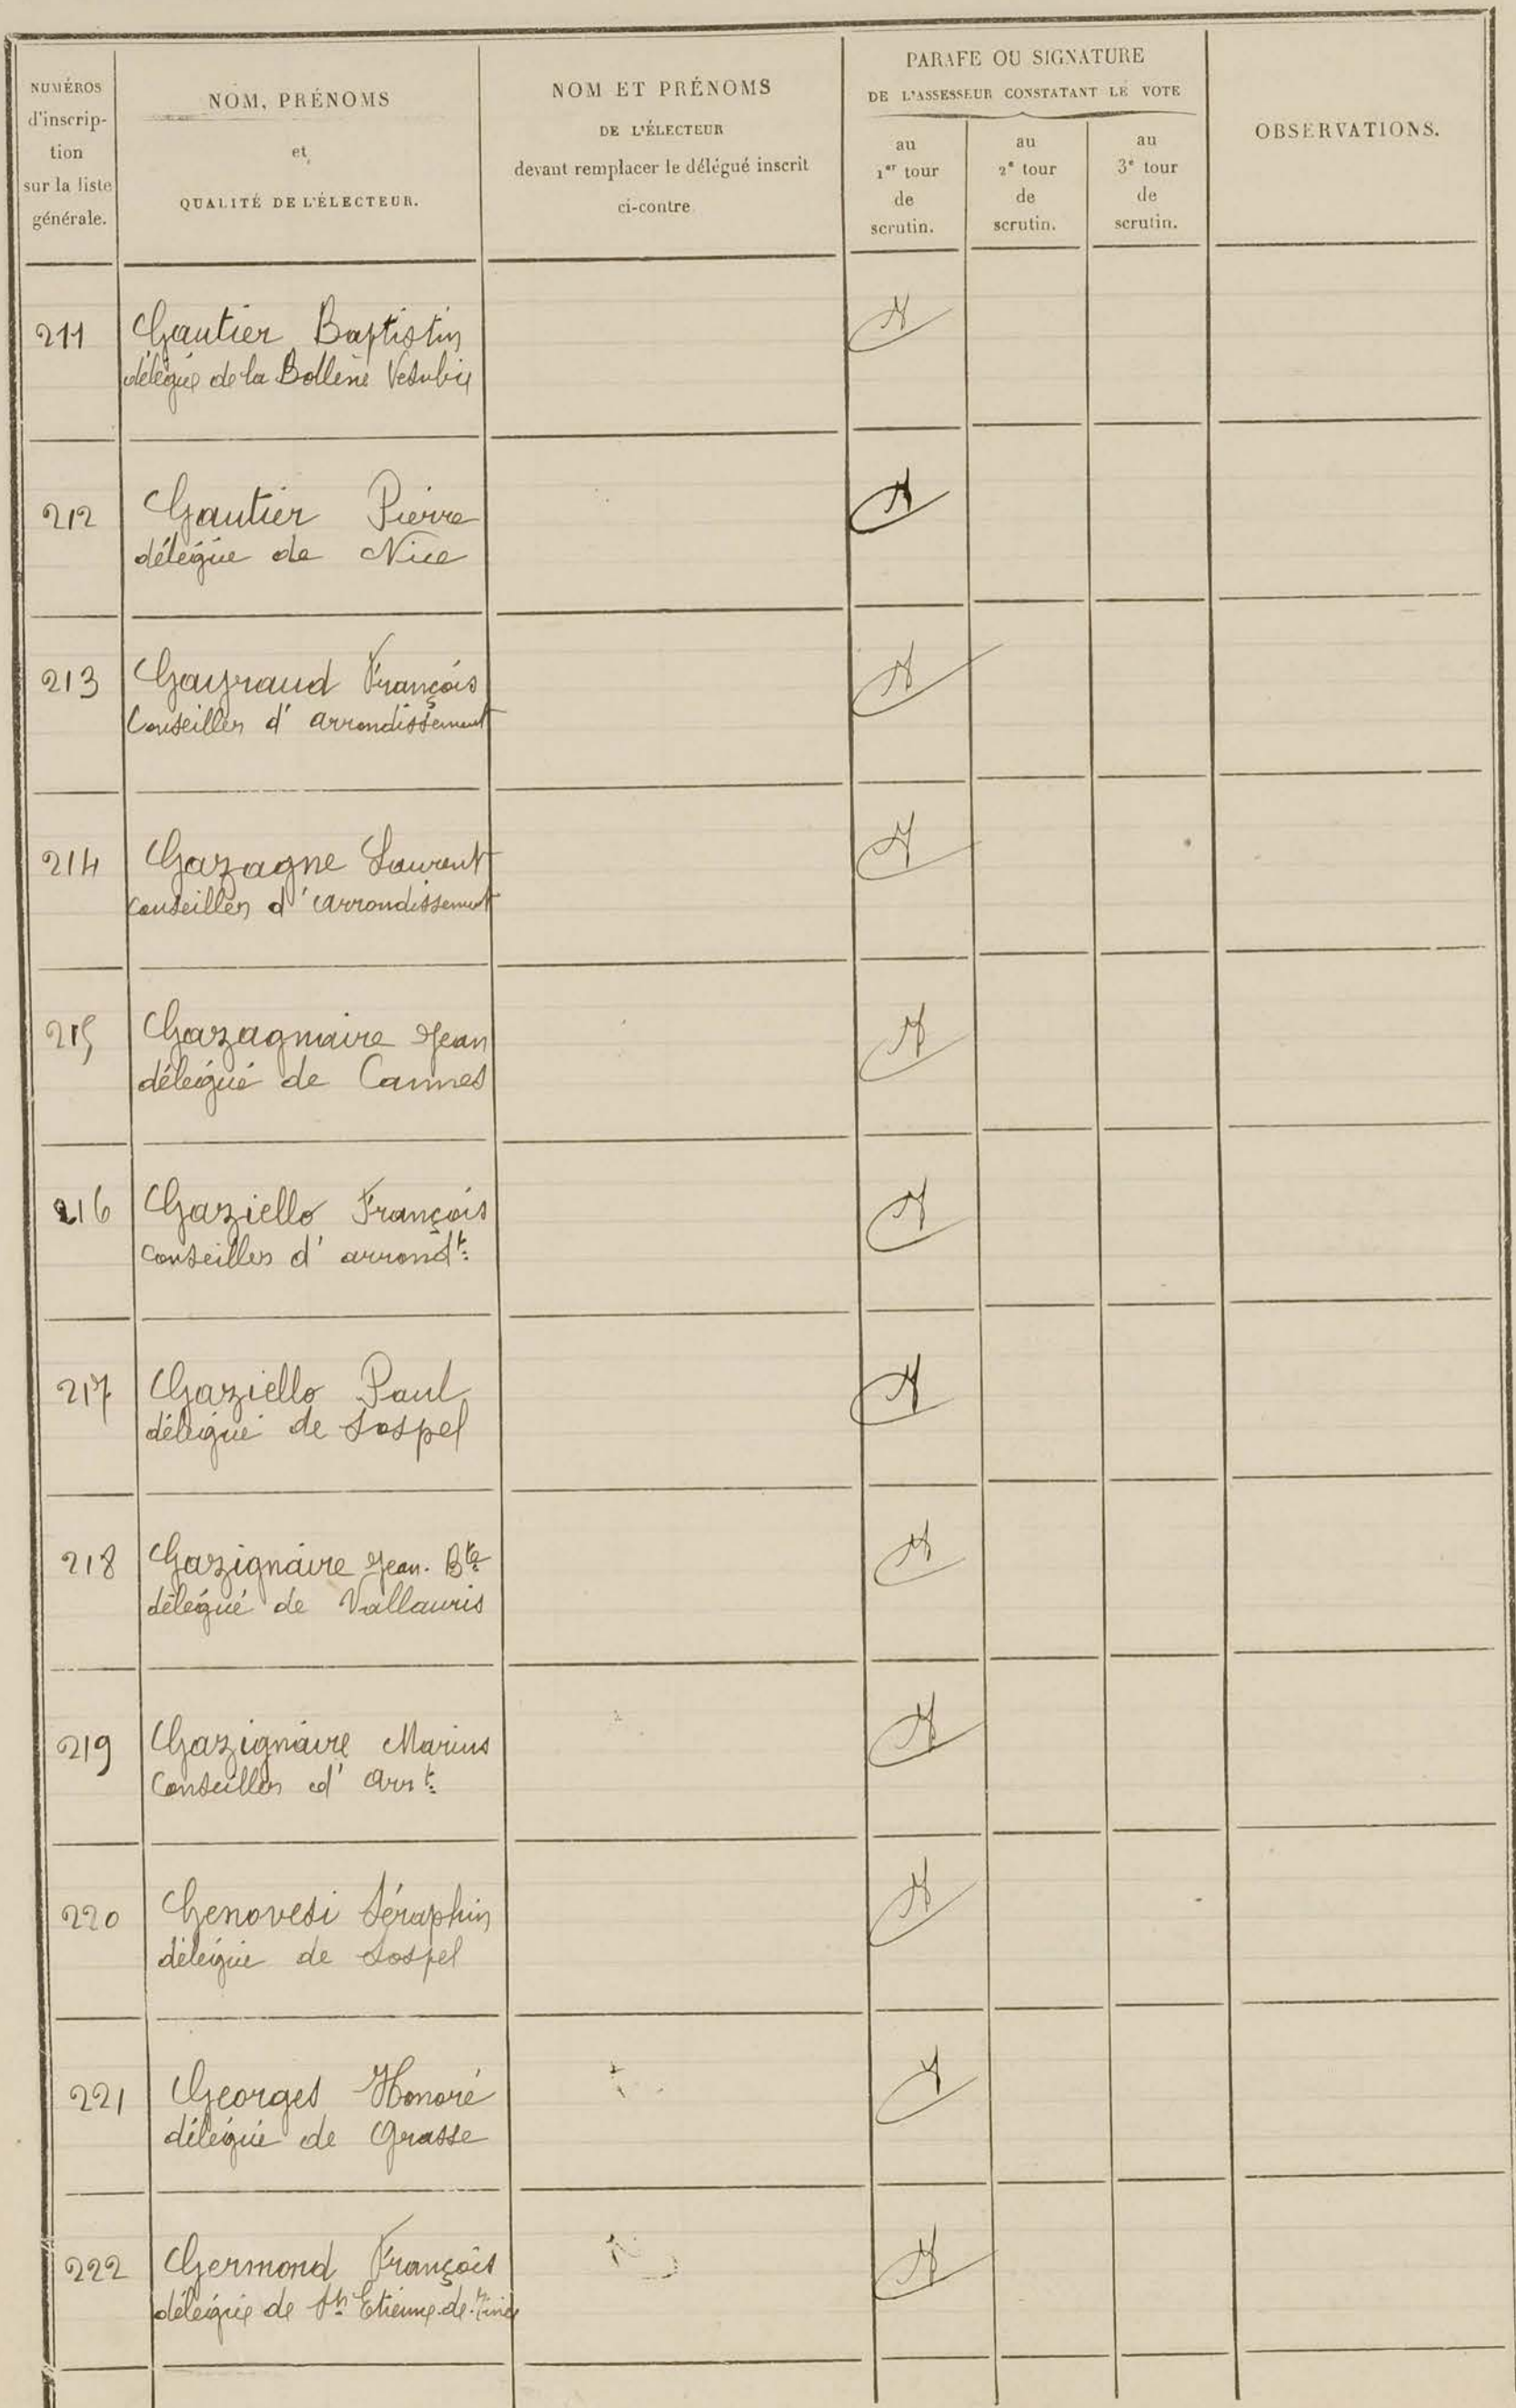 NUMÉROS
d'inscrip-
tion
sur la liste
générale.
NOM, PRÉNOMS
et
QUALITÉ DE L'ÉLECTEUR.
NOM ET PRÉNOMS
DE L'ÉLECTEUR
devant remplacer le délégué inscrit
ci-contre
PARAFE OU SIGNATURE
DE L'ASSESSEUR CONSTATANT LE VOTE
au
1er tour
de
scrutin.
au
2e tour
de
scrutin.
au
3e tour
de
scrutin.
OBSERVATIONS.
211 Gautier Baptistin
délégué de la Bollène Vésubie
212 Gautier Pierre
délégué de Nice
213 Gayraud François
Conseiller d'arrondissement
214 Gazagne Laurent
conseiller d'arrondissement
215 Gazagnaire Jean
délégué de Cannes
216 Gaziello François
conseiller d'arrondt
217 Gaziello Paul
délégué de Sospel
218 Gazignaire Jean-Bte
délégué de Vallauris
219 Gazignaire Marius
Conseiller d'arrt
220 Genovesi Séraphin
délégué de Sospel
221 Georges Honoré
délégué de Grasse
222 Germond François
délégué de St Etienne-de-Tinée